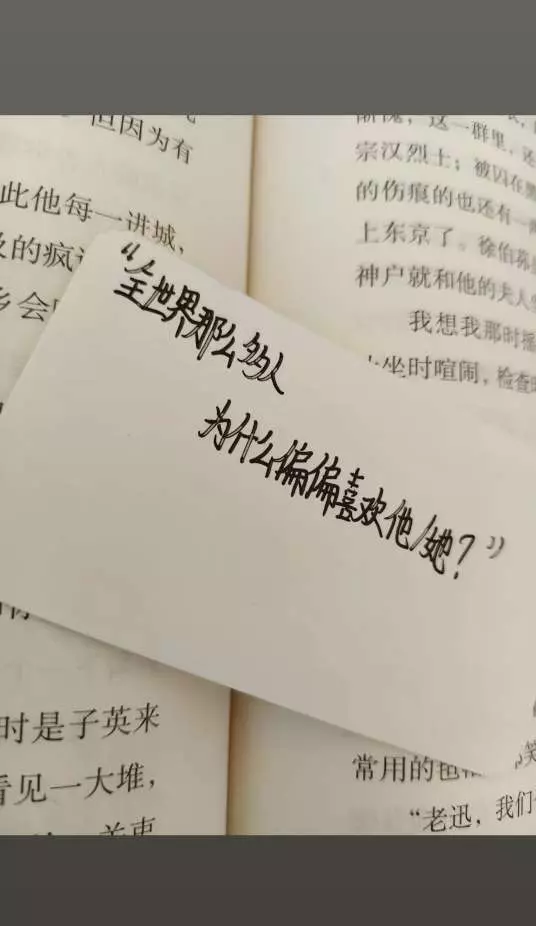 但因为有
此他每一进城,
乡会
“全世界那么多人
为什么偏偏喜欢他/她?”
时是子英来
看见一大堆,
这一群里,还
宗汉烈士;被囚在
的伤痕的也还有一
上东京了。徐伯荪
神户就和他的夫人
我想我那时摇
坐时喧闹,检查
常用的
笑
“老迅,我们